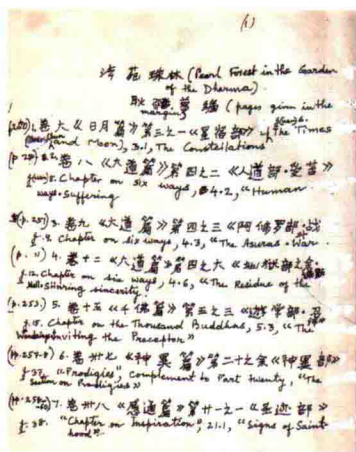 (1)
法苑珠林 (Pearl Forest in the Garden
of the Dharma)
(pages given in the
margin)
1. 卷六《日月篇》第三之一《星宿部》 of the Times
and Moon), 3.1, The Constellations
2. 卷八《六道篇》第四之二《人道部·受苦》
8. Chapter on six ways, 4.2, "Human
ways. Suffering
3. 卷九《六道篇》第四之三《阿修罗部·战
9. Chapter on six ways, 4.3, "The Asuras. War
4. 卷十二《六道篇》第四之六《地狱部之余·
12. Chapter on six ways, 4.6, "The Residue of the
Hell. Shining sincerity.
(p.253.) 5. 卷十五《千佛篇》第五之三《遊学部·召
15. Chapter on the Thousand Buddhas, 5.3, "The
Inviting the Preceptor"
(pp.257-8) 6. 卷卅七《神異篇》第二十之余《神異部》
"Prodigies", Complement to Part twenty, "The
Section on Prodigies"
7. 卷卅八《感通篇》第廿一之一《圣迹部》
38. "Chapter on Inspiration", 21.1, "Signs of Saint-
hood".